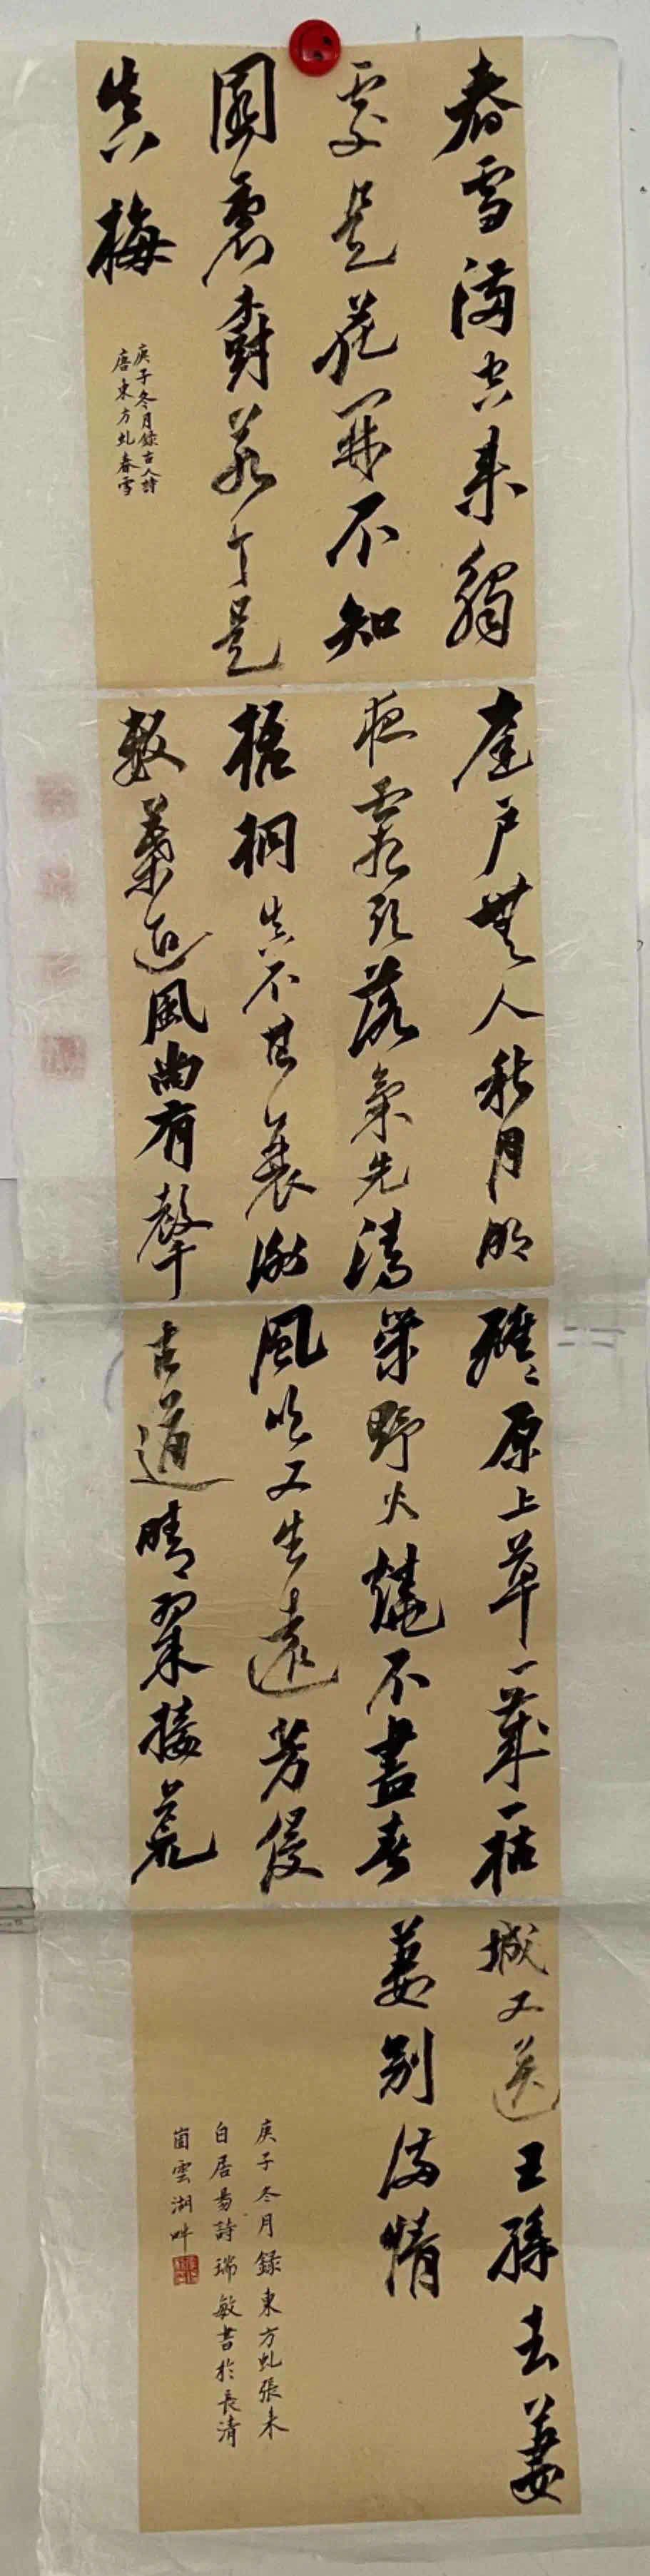 春雪滿空来觸
處是花開不知
園裏樹若个是
真梅
庚子冬月録古人詩
唐東方虬春雪
庭户無人秋月明
夜霜欲落氣先清
梧桐真不甘衰謝
數葉迎風尚有聲
離々原上草一歲一枯
榮野火燒不盡春
風吹又生遠芳侵
古道晴翠接荒
城又送王孫去萋
萋别滿情
庚子冬月録東方虬張耒
白居易詩瑞敏書於長清
崮雲湖畔